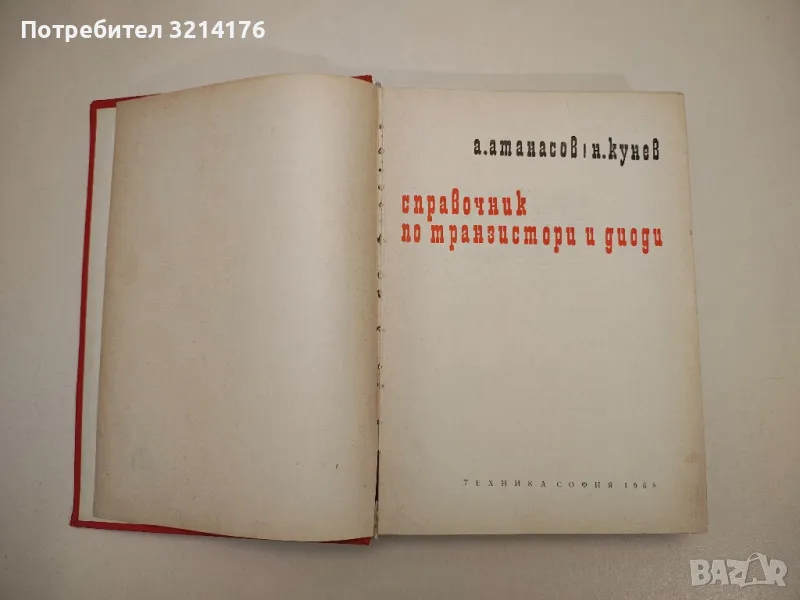 Потребител 3214176
а.атанасов / н.кунев
справочник
по транзистори и диоди
ТЕХНИКА СОФИЯ
BAZAR